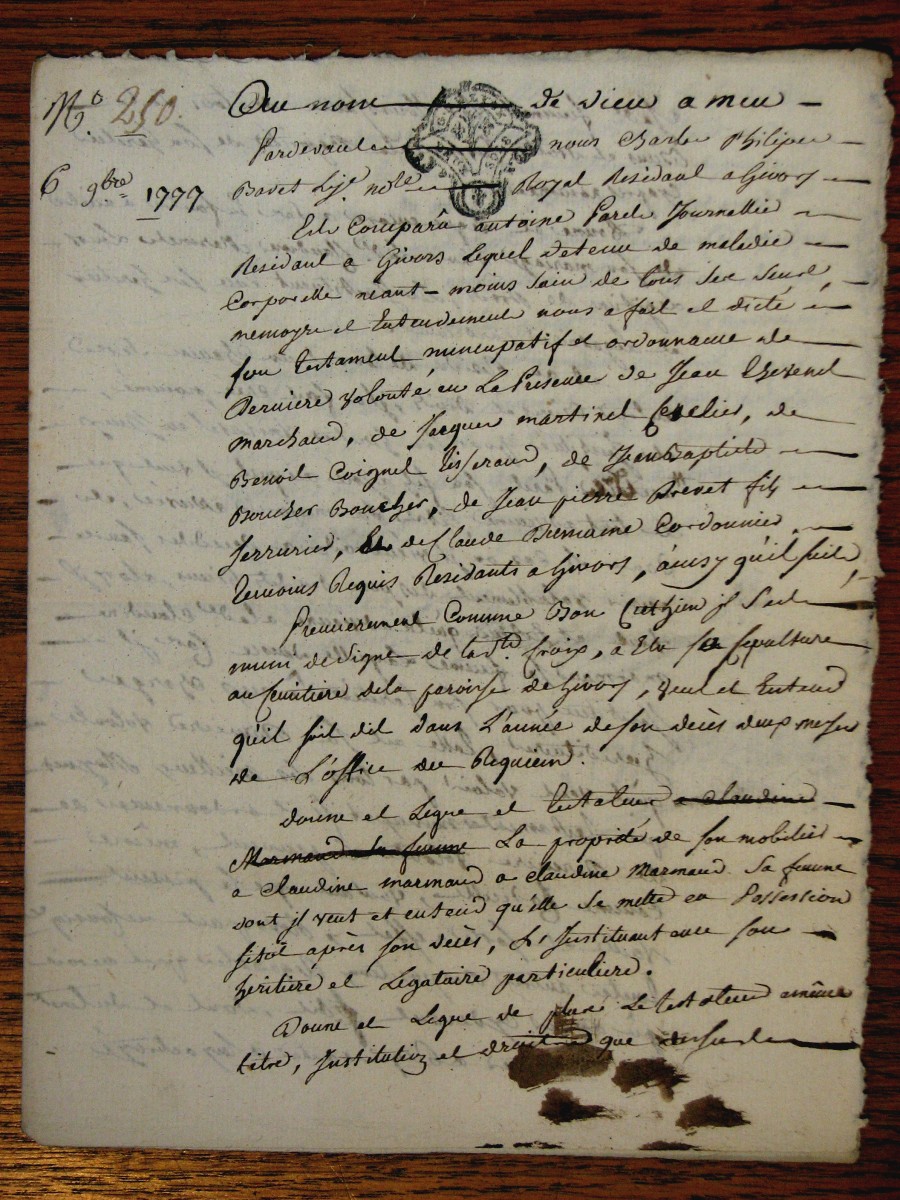 N.º 250.
6 9.bre 1777
Au nom de dieu amen
Pardevant nous Charle Philipe
Bovet Sj.e no.re Royal Residant a Givors
Est Comparû antoine Paret Journallié
Residant a Givors Lequel detenu de maladie
Corporelle néant-moins sain de tous ses sens,
memoyre et Entendement nous a fait et dicté
son testament nuncupatif et ordonnance de
Derniere volonté en La Presence de Jean Thevenet
marchand, de Jacque martinel
Benoit Coignet Tisserand, de Jean Baptiste
Boucher Boucher, de Jean pierre Brevet fils
serrurier, de Claude Bremaine Cordonnier,
temoins Requis Residants a Givors, ainsy qu'il suit,
Premierement Comme Bon Crethien jl s'est
muni du signe de la s.te Croix, a Elu sa sepulture
au semitiere de la paroisse de Givors, veut et Entend
qu'il soit dit dans L'année de son decès deux messes
de L'office du Requiem.
donne et Legue et testateur a claudine
Marmand sa femme La proprieté de son mobilier
a claudine marmand a claudine Marmand sa femme
dont jl veut et entend qu'elle se mette en Possession
sitôt après son decès, L'Instituant son
heritiere et Legataire particuliere.
Donne et Legue de plus Le testateur a même
titre, Institution et droit que dessus